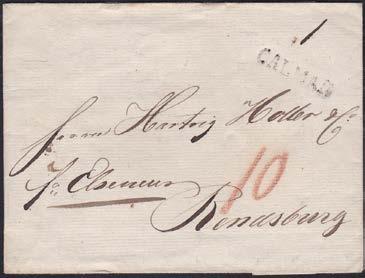 1
CALMAR
Herrn Hartvig Holler & C:
pr Elseneur
10
Rendsburg